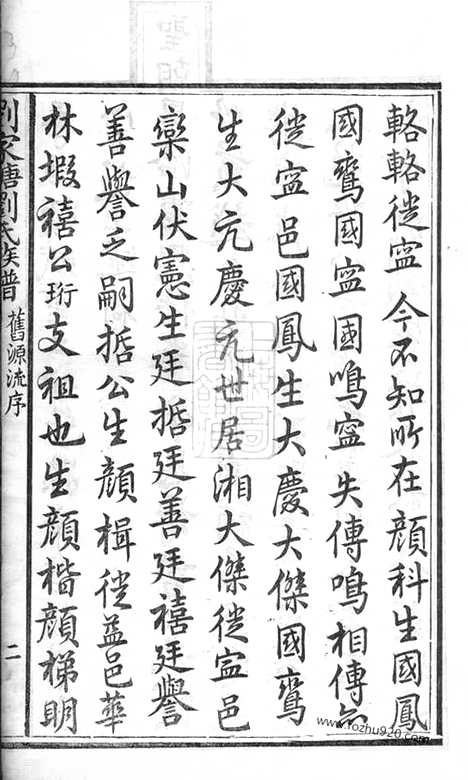 輅輅徙寍今不知所在顔科生國鳳
國鸞國寍國鳴寍失傳鳴相傳亦
徙寍邑國鳳生大慶大傑國鸞
生大亢慶亢世居湘大傑徙寍邑
欒山伏憲生廷拓廷善廷禧廷譽
善譽乏嗣拓公生顔楫徙益邑華
林瑕禧公珩支祖也生顔楷顔梯明
劉家塘劉氏族譜 舊源流序 二
www.fozhu920.com